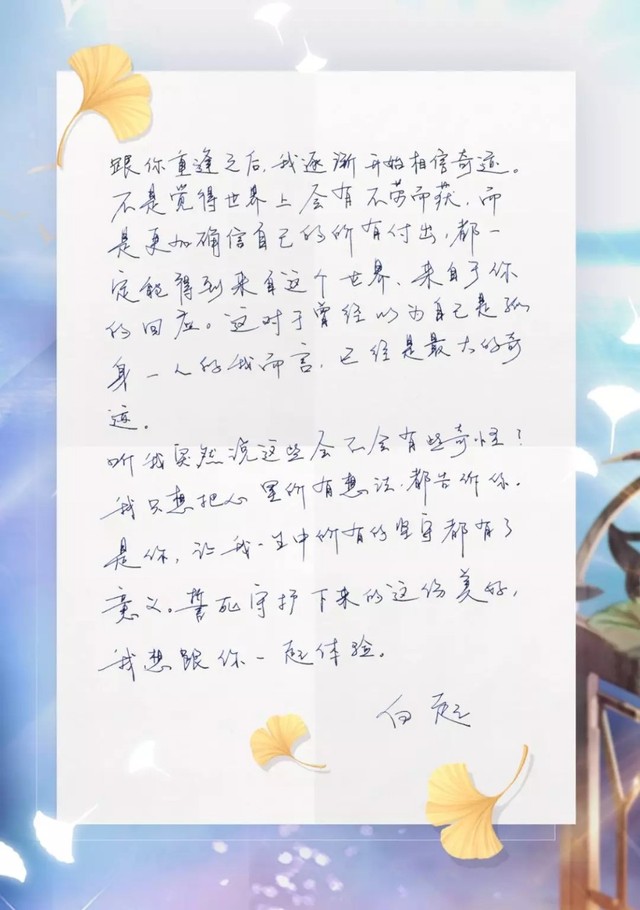 跟你重逢之后,我逐渐开始相信奇迹。
不是觉得世界上会有不劳而获,而
是更加确信自己的所有付出,都一
定能得到来自这个世界、来自于你
的回应。这对于曾经以为自己是孤
身一人的我而言,已经是最大的奇
迹。
听我突然说这些会不会有些奇怪?
我只想把心里所有想法,都告诉你。
是你,让我一生中所有的坚守都有了
意义。誓死守护下来的这份美好,
我想跟你一起体验。
白起